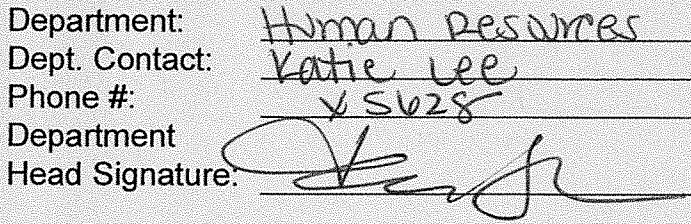 Department: Human Resources
Dept. Contact: Katie Lee
Phone #: x5628
Department
Head Signature: